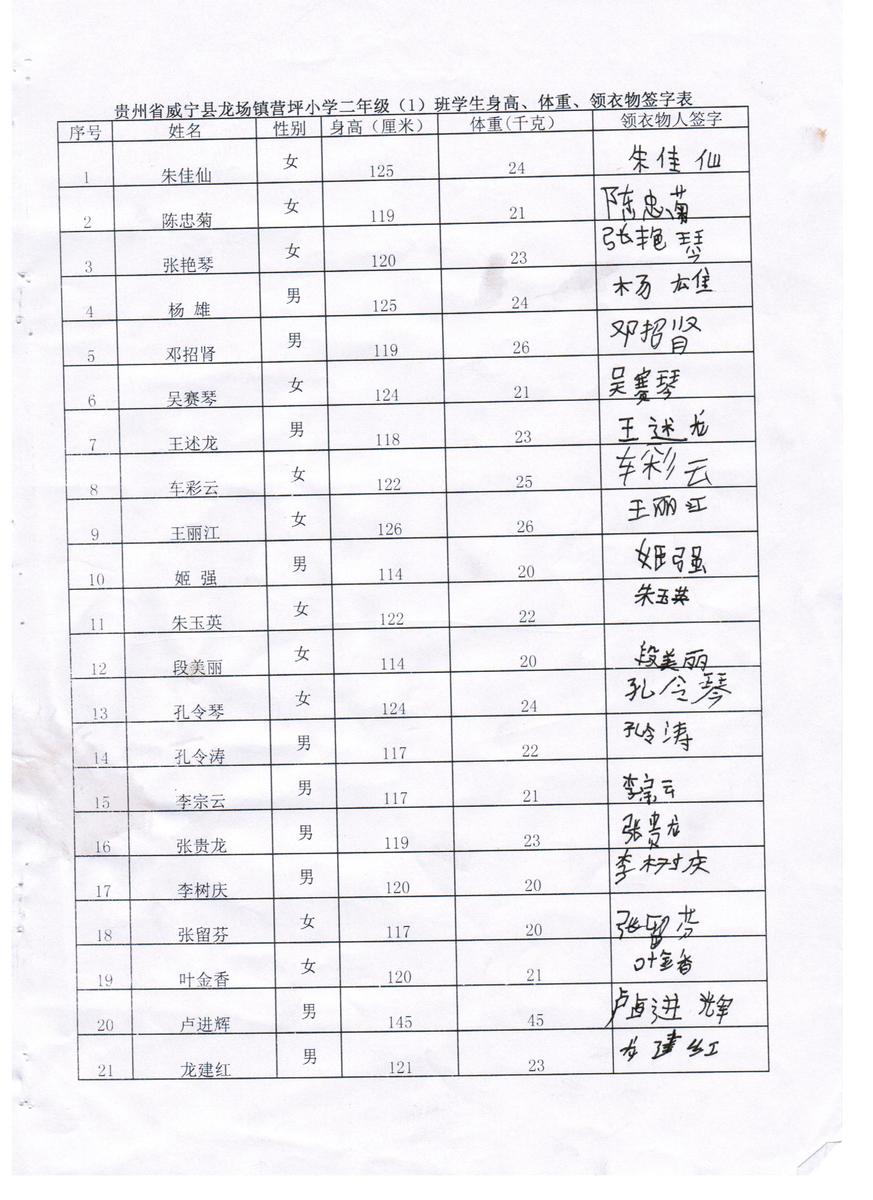 贵州省威宁县龙场镇营坪小学二年级（1）班学生身高、体重、领衣物签字表
序号 姓名 性别 身高（厘米） 体重(千克） 领衣物人签字
1 朱佳仙 女 125 24 朱佳仙
2 陈忠菊 女 119 21 陈忠菊
3 张艳琴 女 120 23 张艳琴
4 杨 雄 男 125 24 杨雄
5 邓招肾 男 119 26 邓招肾
6 吴赛琴 女 124 21 吴赛琴
7 王述龙 男 118 23 王述龙
8 车彩云 女 122 25 车彩云
9 王丽江 女 126 26 王丽江
10 姬 强 男 114 20 姬强
11 朱玉英 女 122 22 朱玉英
12 段美丽 女 114 20 段美丽
13 孔令琴 女 124 24 孔令琴
14 孔令涛 男 117 22 孔令涛
15 李宗云 男 117 21 李宗云
16 张贵龙 男 119 23 张贵龙
17 李树庆 男 120 20 李树庆
18 张留芬 女 117 20 张留芬
19 叶金香 女 120 21 叶金香
20 卢进辉 男 145 45 卢进辉
21 龙建红 男 121 23 龙建红